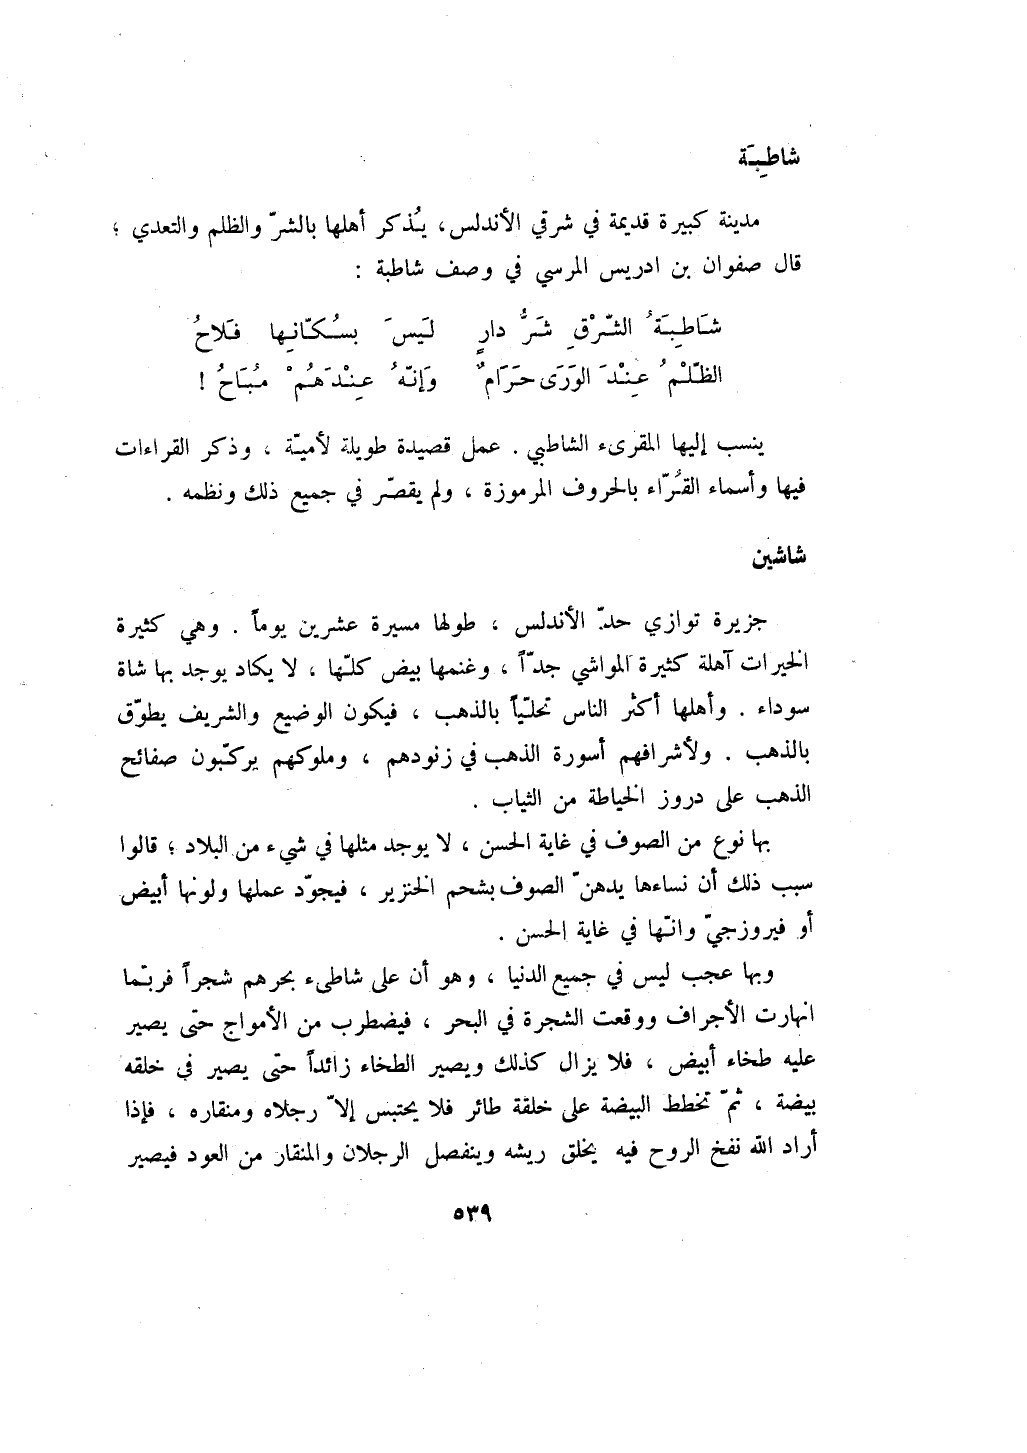 شاطِبَة
مدينة كبيرة قديمة في شرقي الأندلس، يُذكر أهلها بالشرّ والظلم والتعدي ؛
قال صفوان بن ادريس المرسي في وصف شاطبة :
شَاطِبَةُ الشّرْقِ شَرُّ دارٍ لَيسَ بسُكّانِها فَلاحُ
الظّلْمُ عِنْدَ الوَرَى حَرَامٌ وَإنّهُ عِنْدَهُمْ مُبَاحُ !
ينسب إليها المقرىء الشاطبي . عمل قصيدة طويلة لأميّة ، وذكر القراءات
فيها وأسماء القُرّاء بالحروف المرموزة ، ولم يقصّر في جميع ذلك ونظمه .
شاشين
جزيرة توازي حدّ الأندلس ، طولها مسيرة عشرين يوماً . وهي كثيرة
الخيرات آهلة كثيرة المواشي جدّاً ، وغنمها بيض كلّها ، لا يكاد يوجد بها شاة
سوداء . وأهلها أكثر الناس تحلّياً بالذهب ، فيكون الوضيع والشريف يطوّق
بالذهب . ولأشرافهم أسورة الذهب في زنودهم ، وملوكهم يركّبون صفائح
الذهب على دروز الخياطة من الثياب .
بها نوع من الصوف في غاية الحسن ، لا يوجد مثلها في شيء من البلاد ؛ قالوا
سبب ذلك أن نساءها يدهنّ الصوف بشحم الخنزير ، فيجوّد عملها ولونها أبيض
أو فيروزجيّ وانّها في غاية الحسن .
وبها عجب ليس في جميع الدنيا ، وهو أن على شاطىء بحرهم شجراً فربّما
انهارت الأجراف ووقعت الشجرة في البحر ، فيضطرب من الأمواج حتّى يصير
عليه طخاء أبيض ، فلا يزال كذلك ويصير الطخاء زائداً حتّى يصير في خلقه
بيضة ، ثمّ تخطط البيضة على خلقة طائر فلا يحتبس إلاّ رجلاه ومنقاره ، فإذا
أراد الله نفخ الروح فيه يخلق ريشه وينفصل الرجلان والمنقار من العود فيصير
٥٣٩